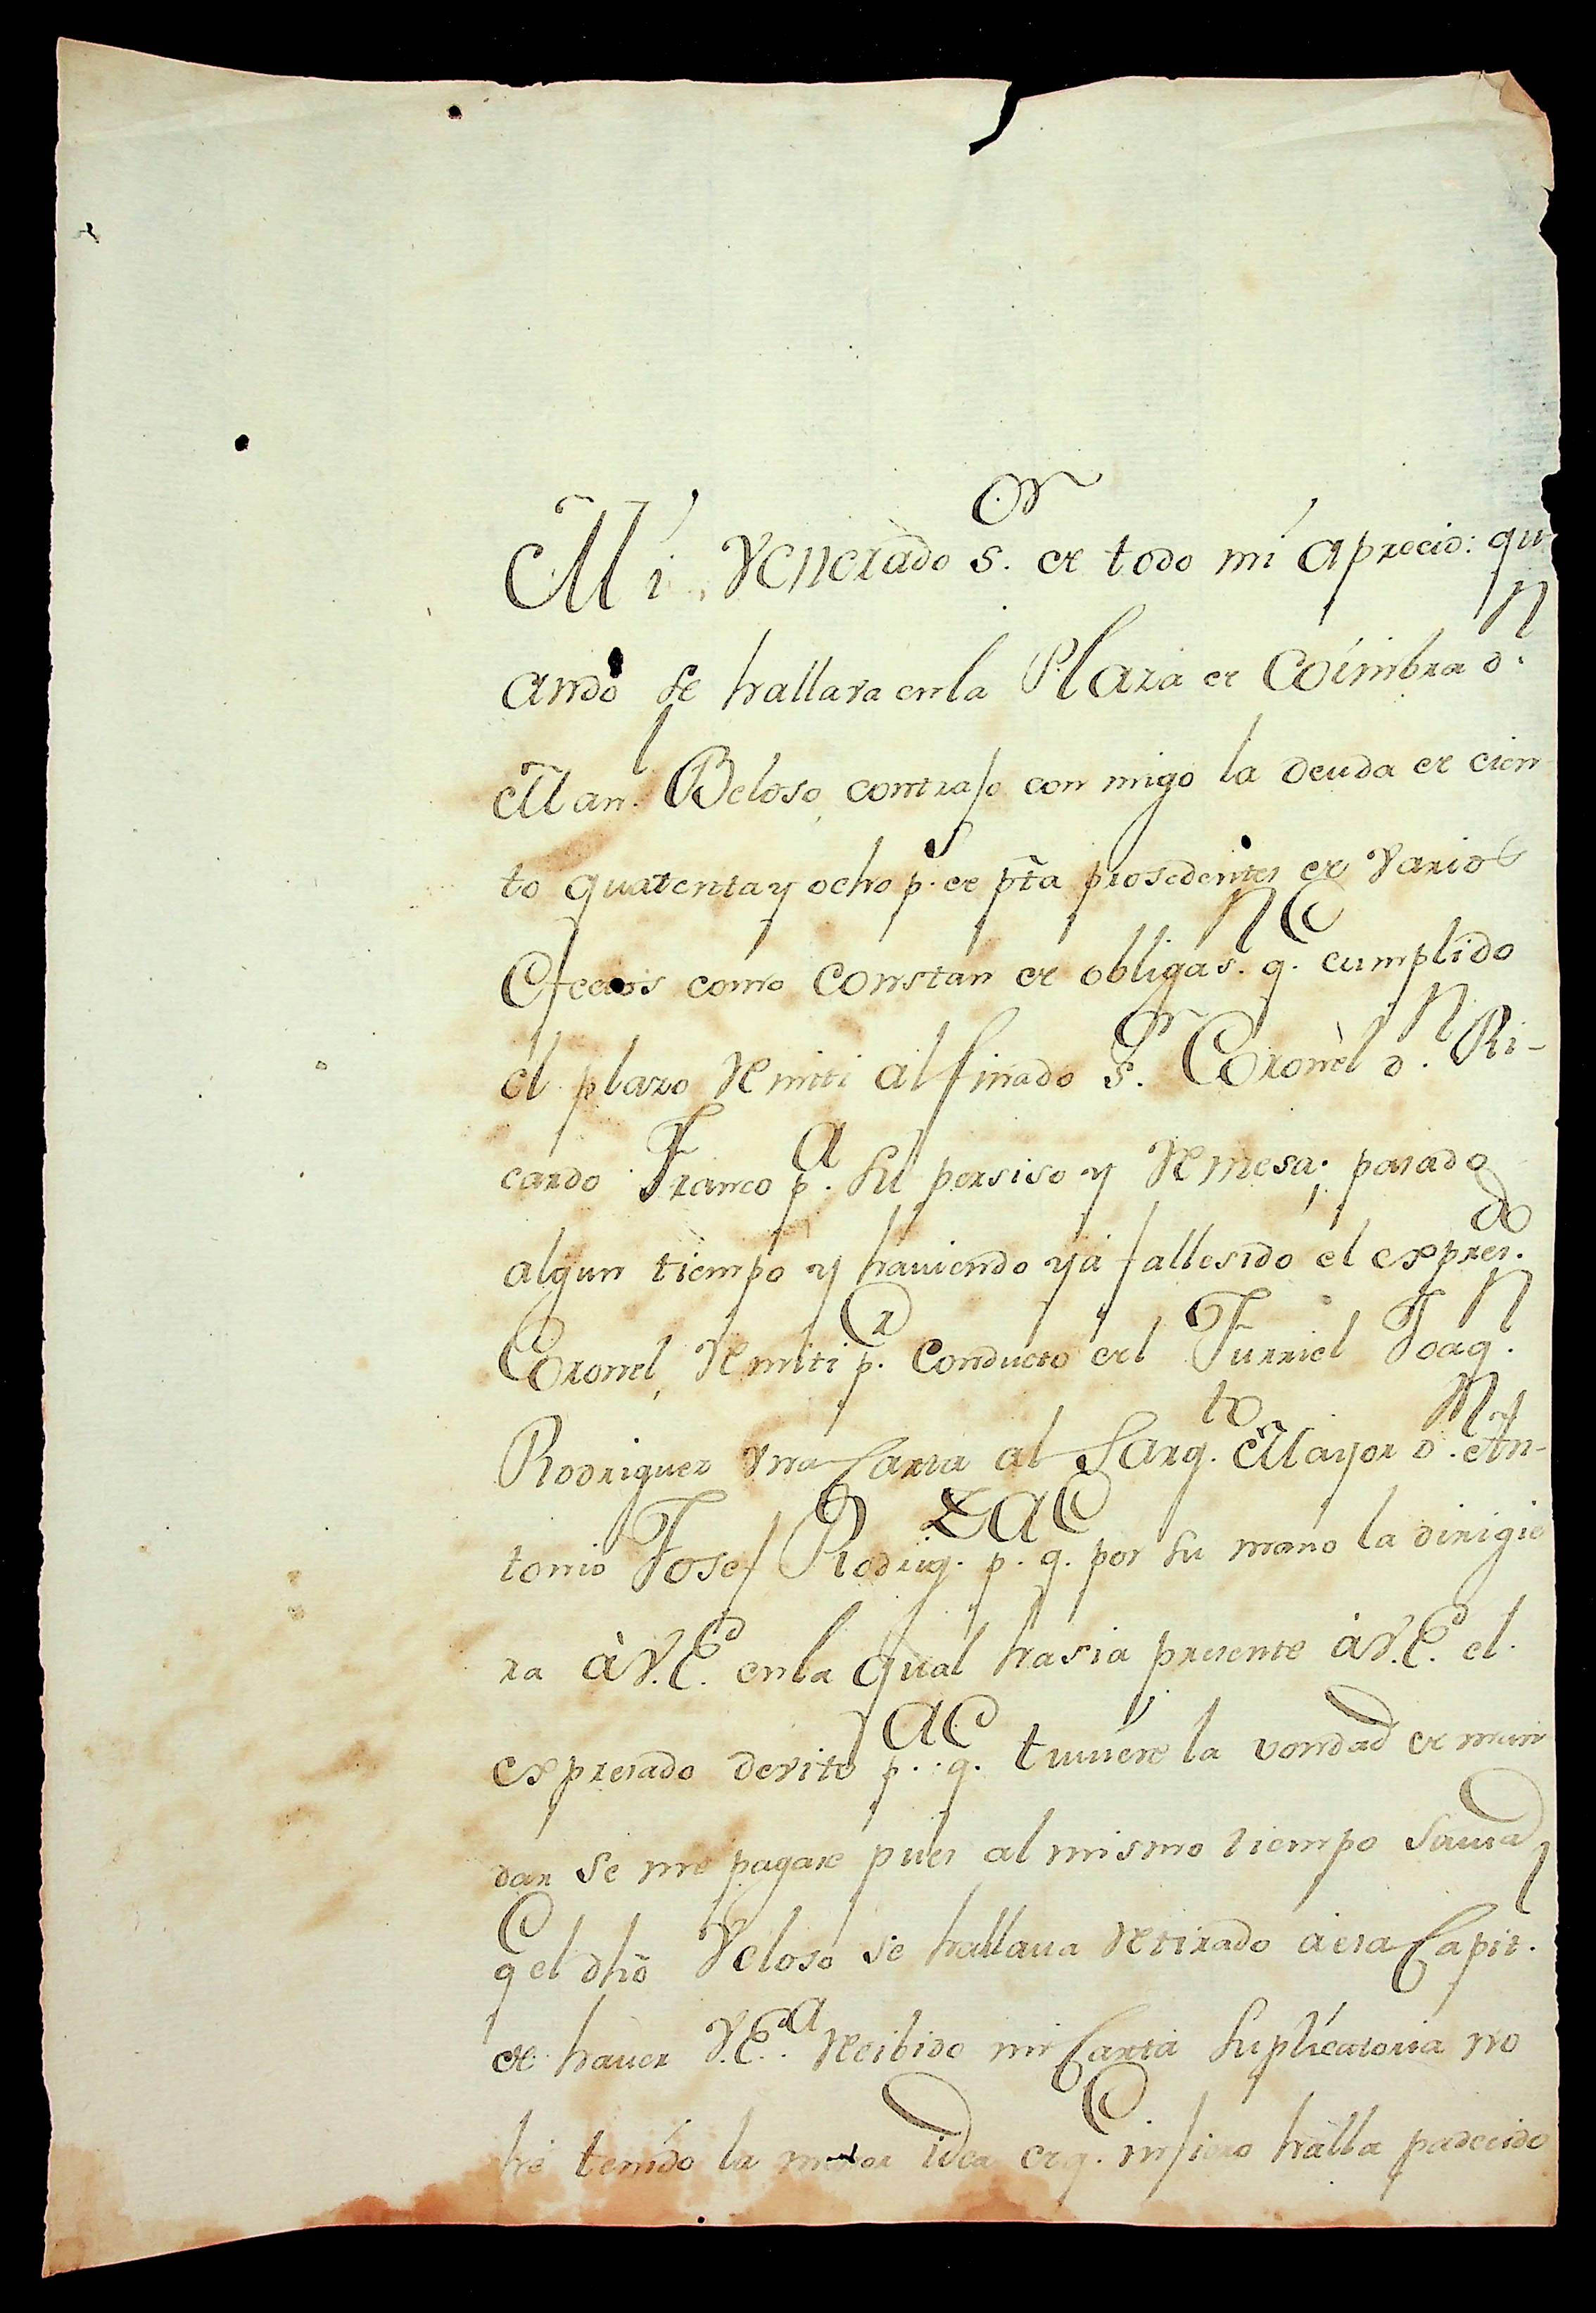 Mi Venerado S.or de todo mi aprecio: qu
ando se hallava en la Plaza de Coimbra d.n
Man.l Beloso, contrajo con migo la deuda de cien
to quarenta y ocho p.s de pta prosedentes de Varios
Efectos como constan de obligas.n q.e cumplido
el plazo Remiti al finado S.or Coronel d.n Ri-
cardo Franco p.a su persiso y Remesa; pasado
algun tiempo y haviendo yá fallesido el expres.do
Coronel, Remiti p.r conducto del Furriel Joaq.n
Rodriguez Vna Carta al Sarg.to Mayor d.n An-
tonio Josef Rodrig.z p.a q.e por su mano la dirigie
ra à V.E. en la qual hasia presente à V.E. el
expresado devito p.a q.e tuviere la vondad de man
dar se me pagase pues al mismo tiempo savia
q.e el dho Veloso se hallava Retirado à esa Capit.l
de haver V.E.a Resibido mi Carta Suplicatoria no
hé tenido la menor idea de q.e infiero halla padecido